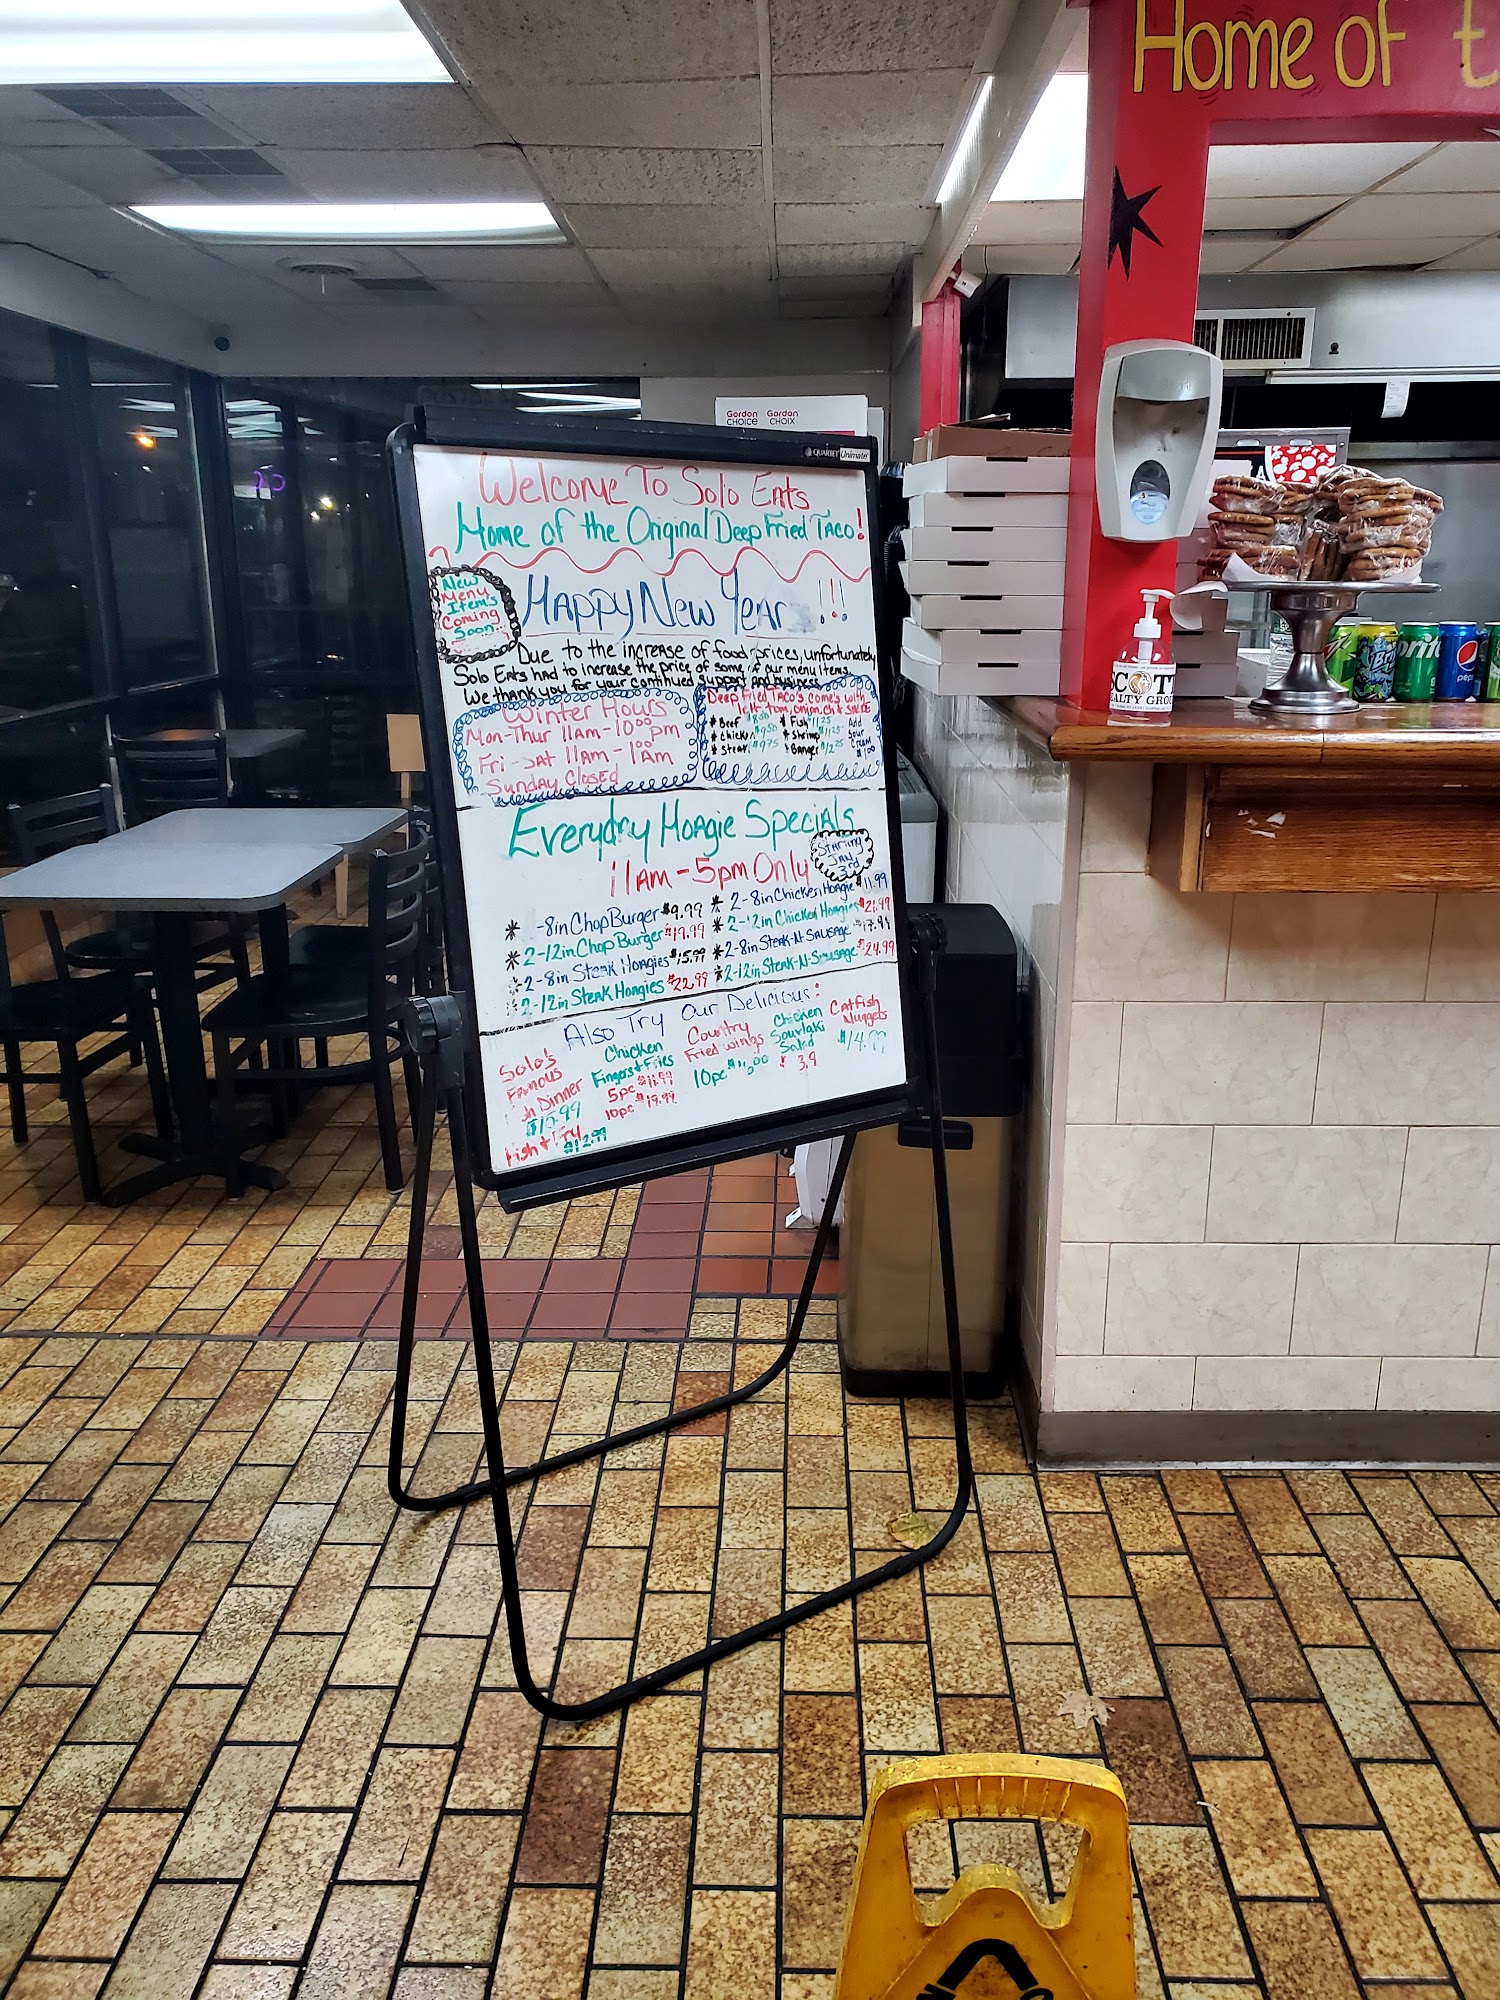 Home of t
Gordon Gordon
CHOICE CHOIX
QUARTET Unimate
Welcome To Solo Eats
Home of the Original Deep Fried Taco!
New
Menu
Item's
Coming
Soon...
Happy New Year !!!
Due to the increase of food prices, unfortunately
Solo Eats had to increase the price of some of our menu items.
We thank you for your continued support and business
Winter Hours
Mon-Thur 11am-10:00 pm
Fri-Sat 11am-1:00 Am
Sunday Closed
Deep Fried Taco's comes with
lett, tom, onion, ch & sauce
* Beef * Fish 11.25
* chicken $9.50 * shrimp $11.25
* Steak $9.75 * Banger $12.25
Add
Sour
Cream
$1.00
Everyday Hoagie Specials
11am-5pm Only
Starting
Jan
3rd
* -8in Chop Burger $9.99
* 2-12in Chop Burger $19.99
2-8in Steak Hoagies $15.99
2-12in Steak Hoagies $22.99
* 2-8in Chicken Hoagie $11.99
* 2-12in Chicken Hoagies $21.99
* 2-8in Steak-N-Sausage $17.99
* 2-12in Steak-N-Sausage $24.99
Also Try Our Delicious!
Solo's
Famous
Dinner
Fish + Fry
$12.99
Chicken
Fingers + Fries
5pc $11.99
10pc $19.99
Country
Fried wings
10pc
Chicken
Souvlaki
Salad
Catfish
Nuggets
$14.99
SCOT
ALTY GRO
Sprite
pepsi